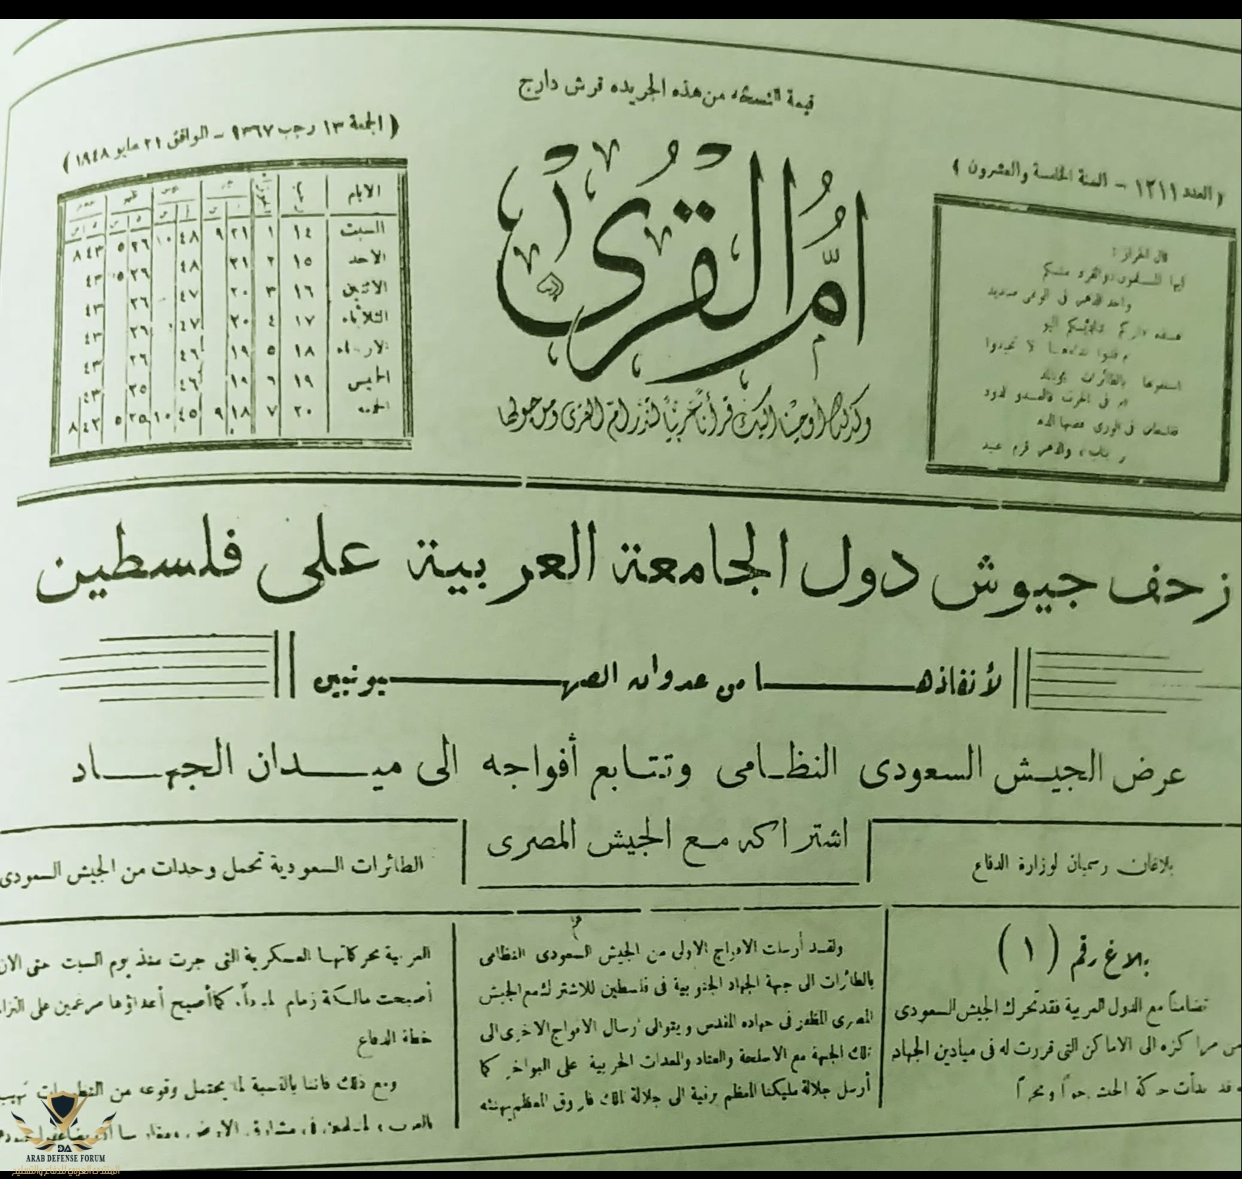 قيمة النسخة من هذه الجريده قرش دارج
( العدد ١٢١١ – السنة الخامسة والعشرون )
أم القرى
( الجمعة ١٣ رجب ١٣٦٧ – الموافق ٢١ مايو ١٩٤٨ )
وكذلك أوحينا اليك قرآنا عربيا لتنذر ام القرى ومن حولها
الايام
السبت ١٤ ١ ٢١ ٩ ٤٨ ١٠ ٢٦ ٥ ٤٣ ٨
الاحد ١٥ ٢ ٢١ ٤٨ ٢٦ ٥ ٤٣
الاثنين ١٦ ٣ ٢٠ ٤٧ ٢٦ ٤٣
الثلاثاء ١٧ ٤ ٢٠ ٤٧ ٢٦ ٤٣
الاربعاء ١٨ ٥ ١٩ ٤٦ ٢٦ ٤٣
الخميس ١٩ ٦ ١٩ ٤٦ ٢٥ ٤٣
الجمعه ٢٠ ٧ ١٨ ٩ ٤٥ ١٠ ٢٥ ٥ ٤٢ ٨
زحف جيوش دول الجامعة العربية على فلسطين
لأنقاذها من عدوان الصهيونيين
عرض الجيش السعودى النظامى وتتابع أفواجه الى ميدان الجهاد
بلاغان رسميان لوزارة الدفاع
اشتراكه مع الجيش المصرى
الطائرات السعودية تحمل وحدات من الجيش السعودى
بلاغ رقم ( ١ )
تضامناً مع الدول العربية فقد تحرك الجيش السعودى
من مراكزه الى الاماكن التى قررت له فى ميادين الجهاد
قد بدأت حركة الجيش جواً وبحراً
ولقد أرسلت الافواج الاولى من الجيش السعودى النظامى
بالطائرات الى جبهة الجهاد الجنوبية فى فلسطين للاشتراك مع الجيش
المصرى المظفر فى جهاده المقدس ويتوالى ارسال الافواج الاخرى الى
تلك الجبهة مع الاسلحة والعتاد والمعدات الحربية على البواخر كما
أرسل جلالة مليكنا المعظم برقية الى جلالة الملك فاروق المعظم يهنئه
العربية بحركاتها العسكرية التى جرت منذ يوم السبت حتى الان
أصبحت مالكة زمام المبدأ. كما أصبح أعداؤها مرغمين على التزا
خطة الدفاع
ومع ذلك فاننا بالنسبة لما يحتمل وقوعه من التطورات نهيب
ARAB DEFENSE FORUM
المنتدى العربي للدفاع والتسليح